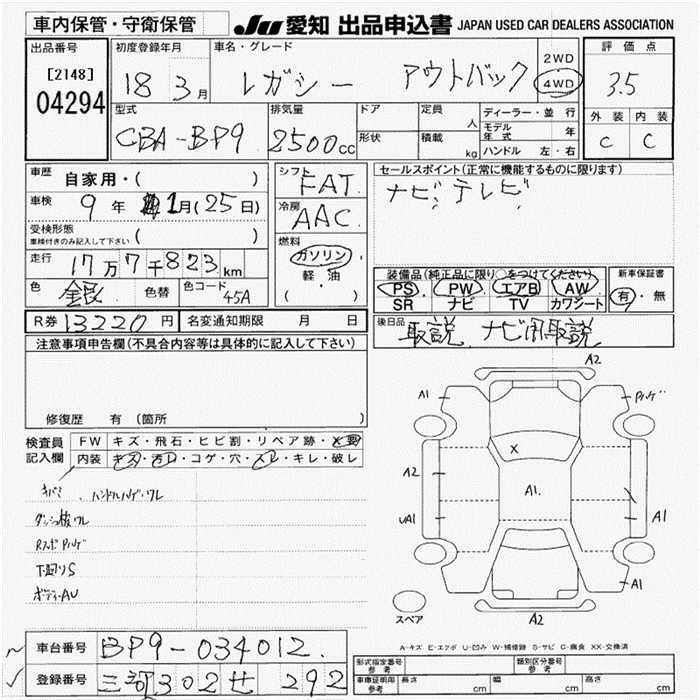 車内保管・守衛保管
JU 愛知 出品申込書 JAPAN USED CAR DEALERS ASSOCIATION
出品番号
[2148]
04294
初度登録年月
18 3月
車名・グレード
レガシー アウトバック
2WD
4WD
評価点
3.5
外装 内装
C C
型式
CBA-BP9
排気量
2500cc
ドア
形状
定員 人
積載 kg
ディーラー・並行
モデル年式 年
ハンドル 左・右
車歴 自家用・( )
車検 9年 1月(25日)
受検形態
車検付きのみ記入して下さい ( )
走行 17万7千823km
色 銀 色替 色コード 45A
シフト
FAT
冷房
AAC
燃料
ガソリン
軽・油
( )
セールスポイント(正常に機能するものに限ります)
ナビ、テレビ
装備品(純正品に限り○をつけてください)
PS PW エアB AW
SR ナビ TV カワシート
新車保証書
有・無
後日品
取説、ナビ用取説
R券 13220円 名変通知期限 月 日
注意事項申告欄(不具合内容等は具体的に記入して下さい)
修復歴 有 (箇所 )
検査員
記入欄
FW キズ・飛石・ヒビ割・リペア跡・×要
内装 キズ・汚れ・コゲ・穴・スレ・キレ・破レ
キバミ、ハンドルハゲ・ワレ
ダッシュ板ワレ
Rスポ Pハゲ
下廻りS
ボディーAU
A2
A1
Pハゲ
X
A2
A1.
UA1
A1
A1
A2
スペア
A-キズ E-エクボ U-凹み W-補修跡 S-サビ C-腐食 XX-交換済
車台番号 BP9-034012
登録番号 三河302せ 292
形式指定番号
参考
類別区分番号
参考
車庫証明用
参考
長さ cm 幅 cm 高さ cm